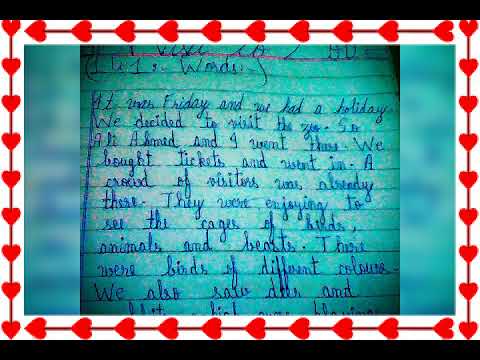 Visit to
Words.
It was Friday and we had a holiday.
We decided to visit the zoo. So
Ali Ahmed and I went there. We
bought tickets and went in. A
crowd of visitors was already
there. They were enjoying to
see the cages of birds,
animals and beasts. There
were birds of different colours.
We also saw deer and
which were playing